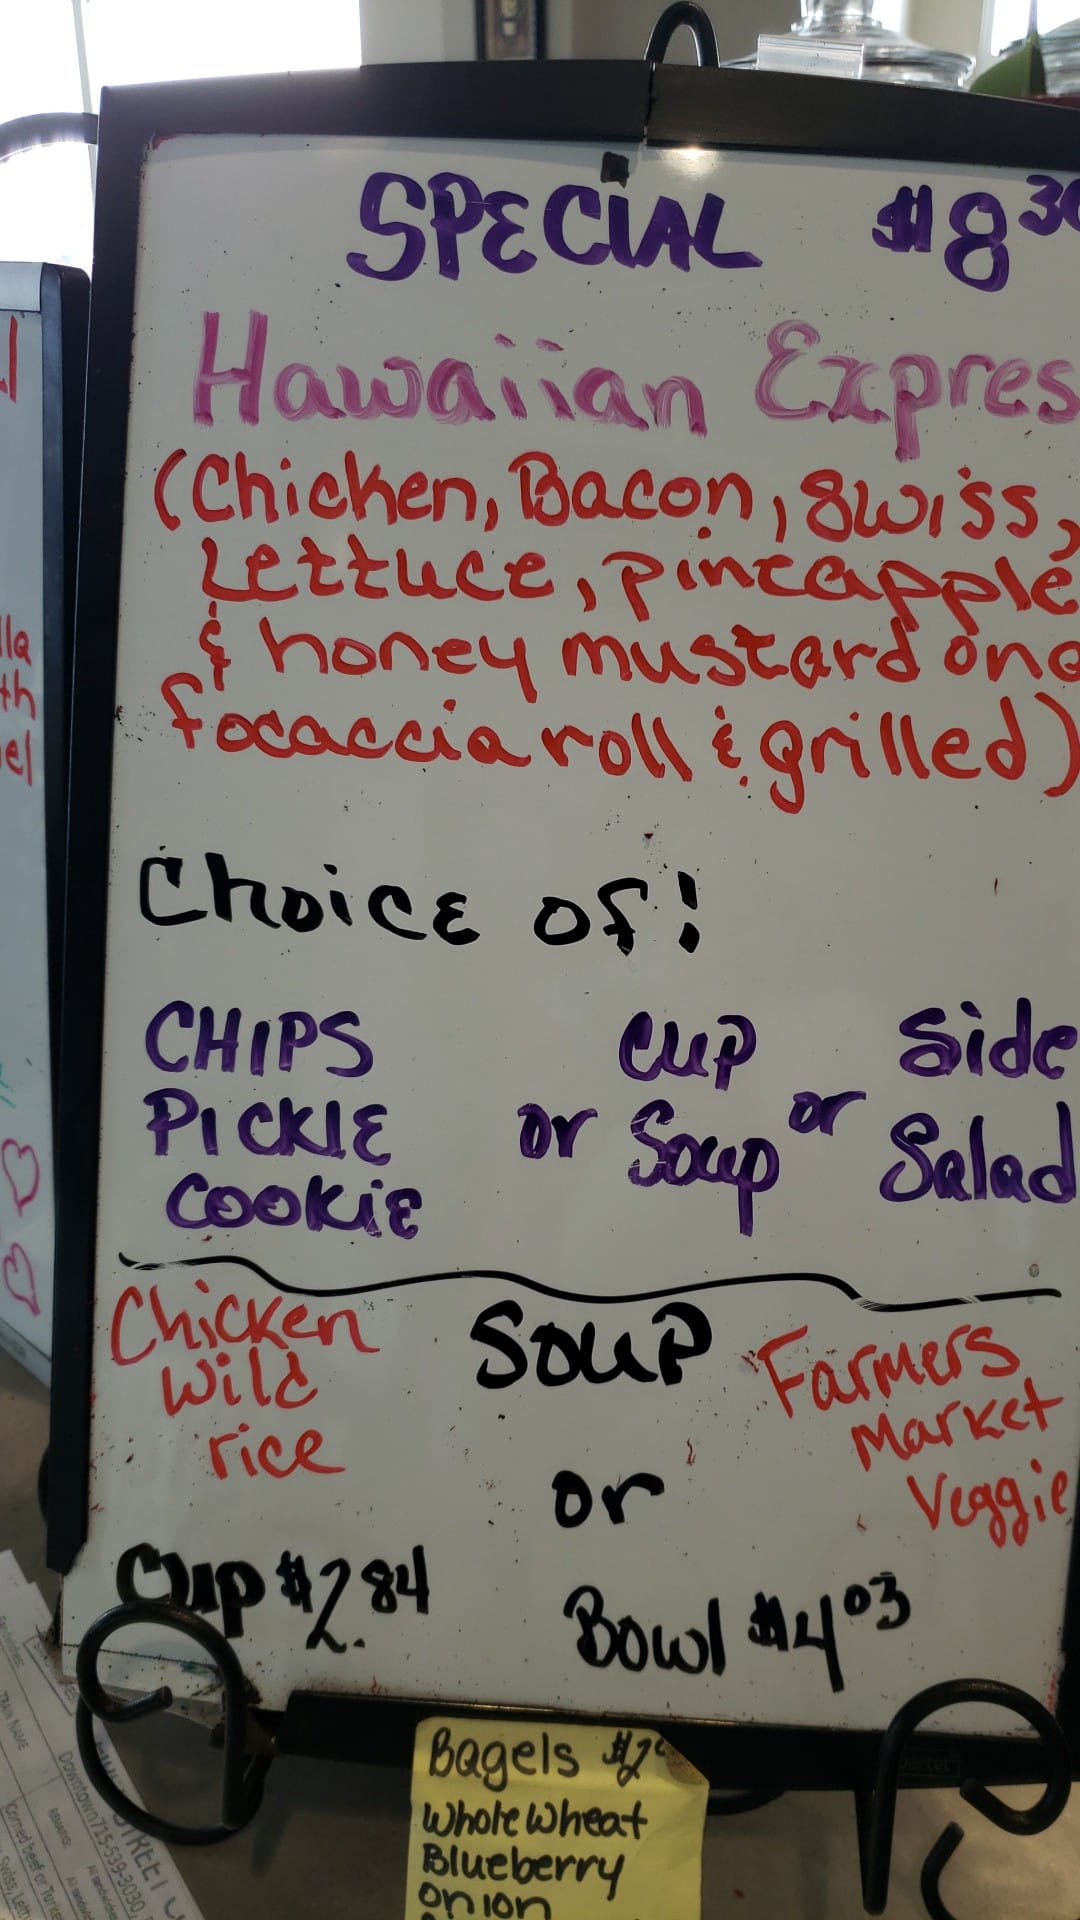 SPECIAL $8 30
Hawaiian Expres
(Chicken, Bacon, Swiss,
Lettuce, pineapple
& honey mustard on a
focaccia roll & grilled)
Choice of!
CHIPS
PICKLE
COOKIE
or
Cup
Soup
or
Side
Salad
Chicken
Wild
rice
SOUP
or
Farmers
Market
Veggie
Cup $2.84
Bowl $4 03
Bagels
Whole Wheat
Blueberry
onion
lla
th
el
TRAIN NAME
Downtown 715-539-3030
Corned beef or Turkey
Swiss, Lett